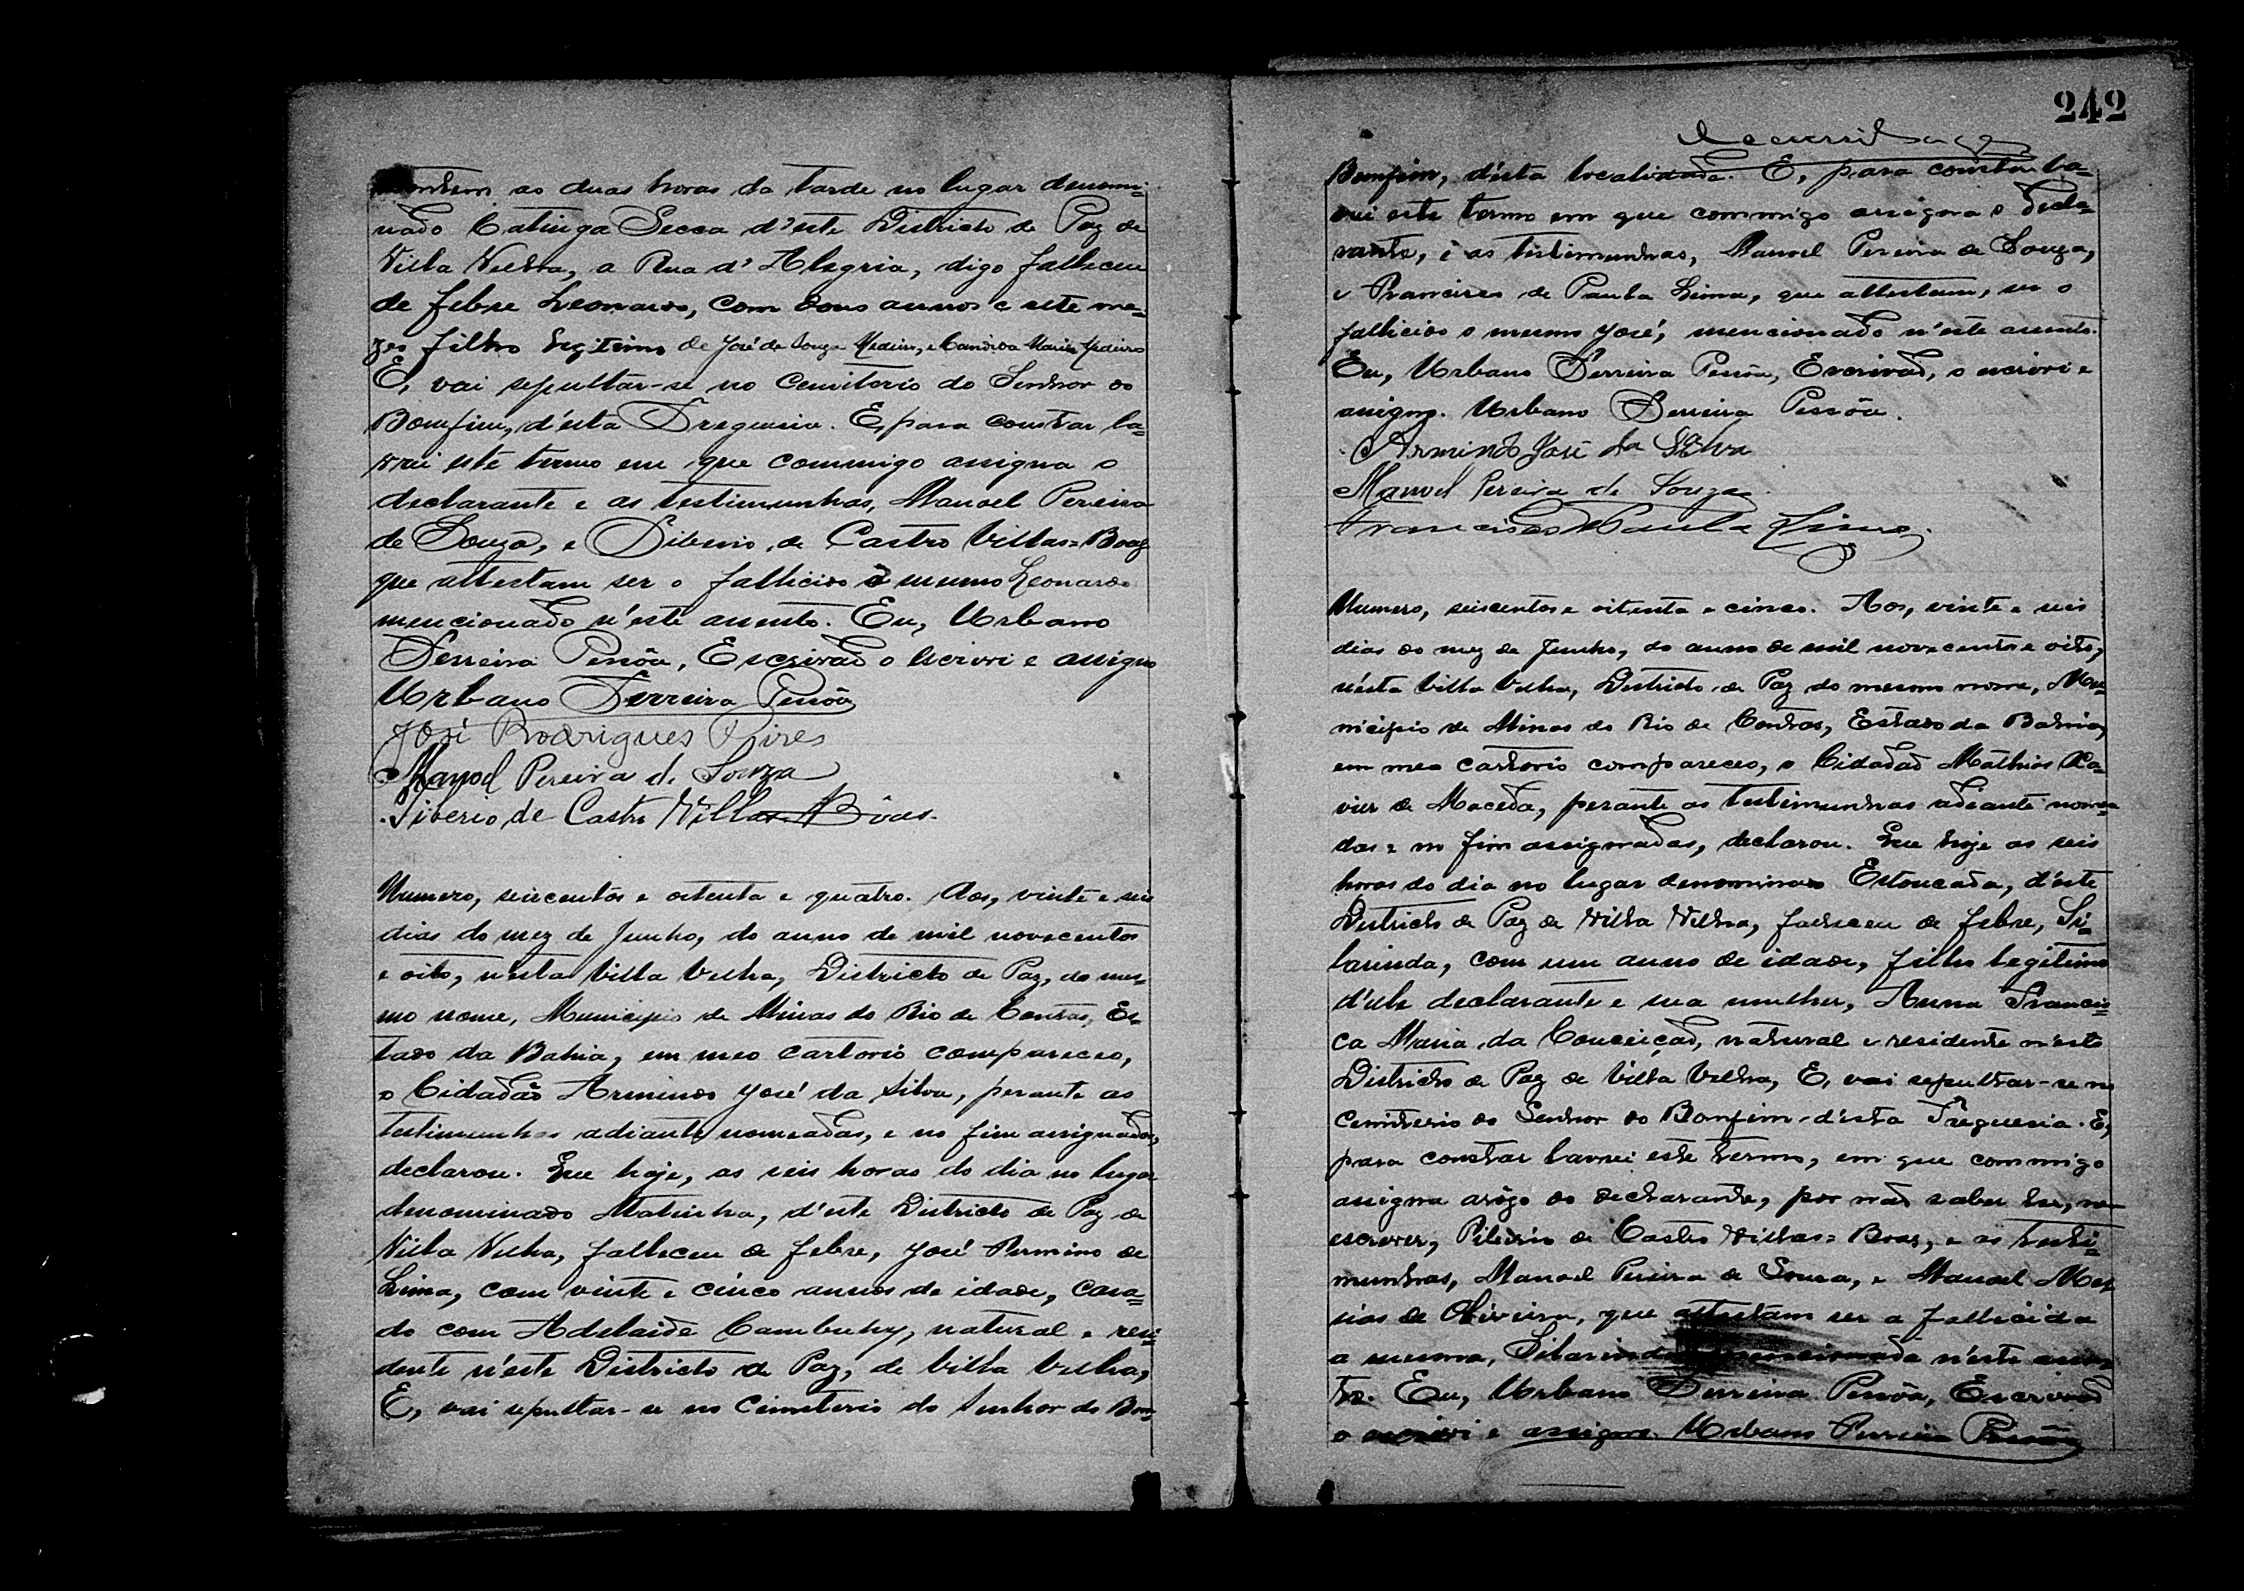 hontem as duas horas da tarde no lugar denomi=
nado Catinga Secca d'este Districto de Paz de
Villa Velha, a Rua d'Alegria, digo falleceu
de febre Leonardo, com dous annos e sete me=
zes filho legitimo de José de Souza Medeiros, e Candida Maria Medeiros
E, vai sepultar-se no Cemiterio do Senhor do
Bomfim, d'esta Freguesia. E, para constar la=
vrei este termo em que commigo assigna o
declarante e as testimunhas, Manoel Pereira
de Souza, e Tiberio de Castro Villas=Boas
que attestam ser o fallicido o mesmo Leonardo
mencionado n'este assento. Eu, Urbano
Ferreira Pessôa, Escrivaõ o escrevi e assigno
Urbano Ferreira Pessôa
José Rodrigues Pires
Manoel Pereira de Souza
Tiberio de Castro Villas-Bôas.
Numero, seiscentos e oitenta e quatro. Aos, vinte e seis
dias do mez de Junho, do anno de mil novecentos
e oito, n'esta Villa Velha, Districto de Paz, do mes=
mo nome, Municipio de Minas do Rio de Contas, Es=
tado da Bahia, em meo cartorio compareceo,
o Cidadão Armindo José da Silva, perante as
testimunhas adiante nomeadas, e no fim assignadas,
declarou. Que hoje, as seis horas do dia no lugar
denominado Matinha, d'este Districto de Paz de
Villa Velha, falleceu de febre, José Firmino de
Lima, com vinte e cinco annos de idade, casa=
do com Adelaide Cambuhy, natural e resi=
dente n'este Districto de Paz, de Villa Velha,
E, vai sepultar-se no Cimeterio do Senhor do Bom
242
Bomfim, d'esta localidade. E, para constar la=
vrei este termo em que commigo assigna o decla=
rante, e as testimunhas, Manoel Pereira de Souza,
e Francisco de Paula Lima, que attestam, ser o
fallicido o mesmo José, mencionado n'este assento.
Eu, Urbano Ferreira Pessôa, Escrivaõ, o escrevi e
assigno. Urbano Ferreira Pessôa.
Armindo José da Silva
Manoel Pereira de Souza.
Francisco de Paula Lima.
Numero, seiscentos e oitenta e cinco. Aos, vinte e seis
dias do mez de Junho, do anno de mil novecentos e oito,
n'esta Villa Velha, Districto de Paz do mesmo nome, Mu=
nicipio de Minas do Rio de Contas, Estado da Bahia,
em meo cartorio compareceo, o Cidadaõ Mathias Xa=
vier de Macedo, perante as testimunhas adiante nomea=
das e no fim assignadas, declarou. Que hoje as seis
horas do dia no lugar denominado Estoucada, d'este
Districto de Paz de Villa Velha, falleceu de febre, Si=
larinda, com um anno de idade, filha legitima
d'elle declarante e sua mulher, Anna Francis=
ca Maria da Conceiçaõ, natural e residente n'este
Districto de Paz de Villa Velha, E, vai sepultar-se no
Cemiterio do Senhor do Bomfim d'esta Freguesia. E,
para constar lavrei este termo, em que commigo
assigna arogo do declarante, por naõ saber ler, nem
escrever, Tiberio de Castro Villas=Boas, e as testi=
munhas, Manoel Pereira de Souza, e Manoel Mes
sias de Oliveira, que attestam ser a fallicida
a mesma, Silarinda mencionada n'este assen=
to. Eu, Urbano Ferreira Pessôa, Escrivaõ
o escrevi e assigno. Urbano Ferreira Pessôa